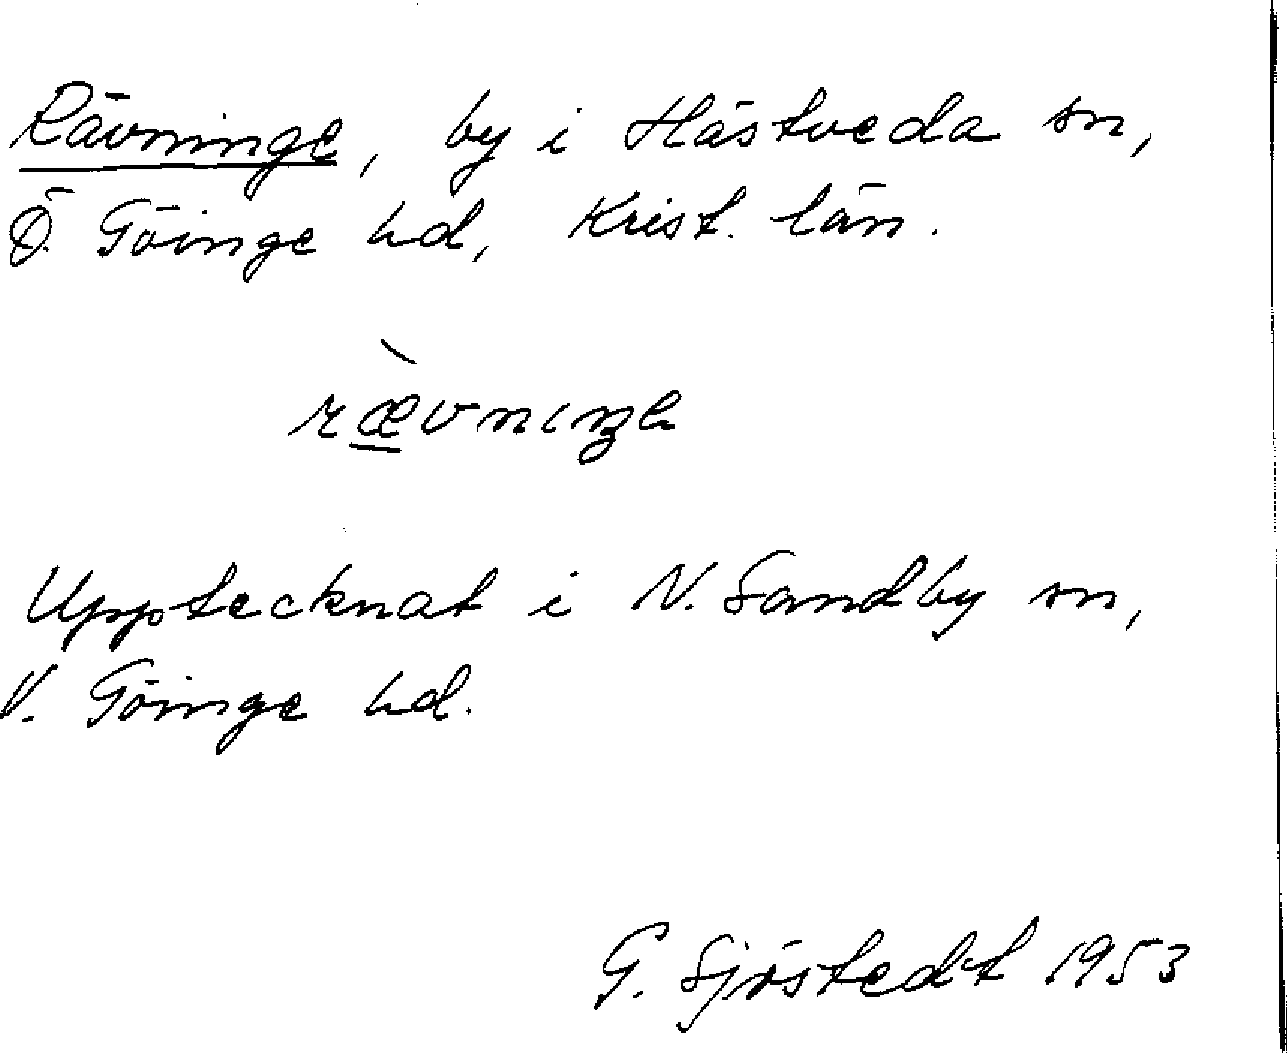 Rävninge, by i Hästveda sn,
Ö. Göinge hd, Krist. län.
ræ̱̀vniŋə
Upptecknat i N. Sandby sn,
V. Göinge hd.
G. Sjöstedt 1953